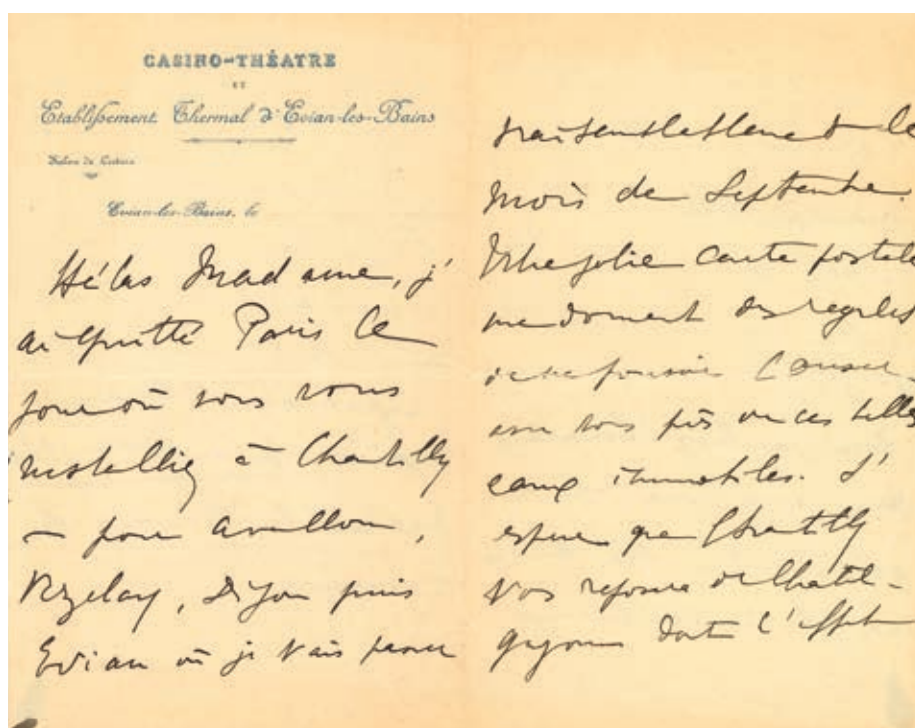 CASINO-THÉATRE
ET
Etablissement Thermal d'Evian-les-Bains
Salon de Lecture
Evian-les-Bains, le
Hélas Madame, j'
ai quitté Paris le
jour où vous vous
installiez à Chantilly
— pour Avallon,
Vezelay, Dijon puis
Evian où je vais passer
vraisemblablement le
mois de Septembre.
Votre jolie carte postale
me donnent des regrets
de ne pouvoir causer
avec vous près de ces belles
eaux immobiles. J'
espère que Chantilly
vos repose de Chatel-
guyon dont l'effet